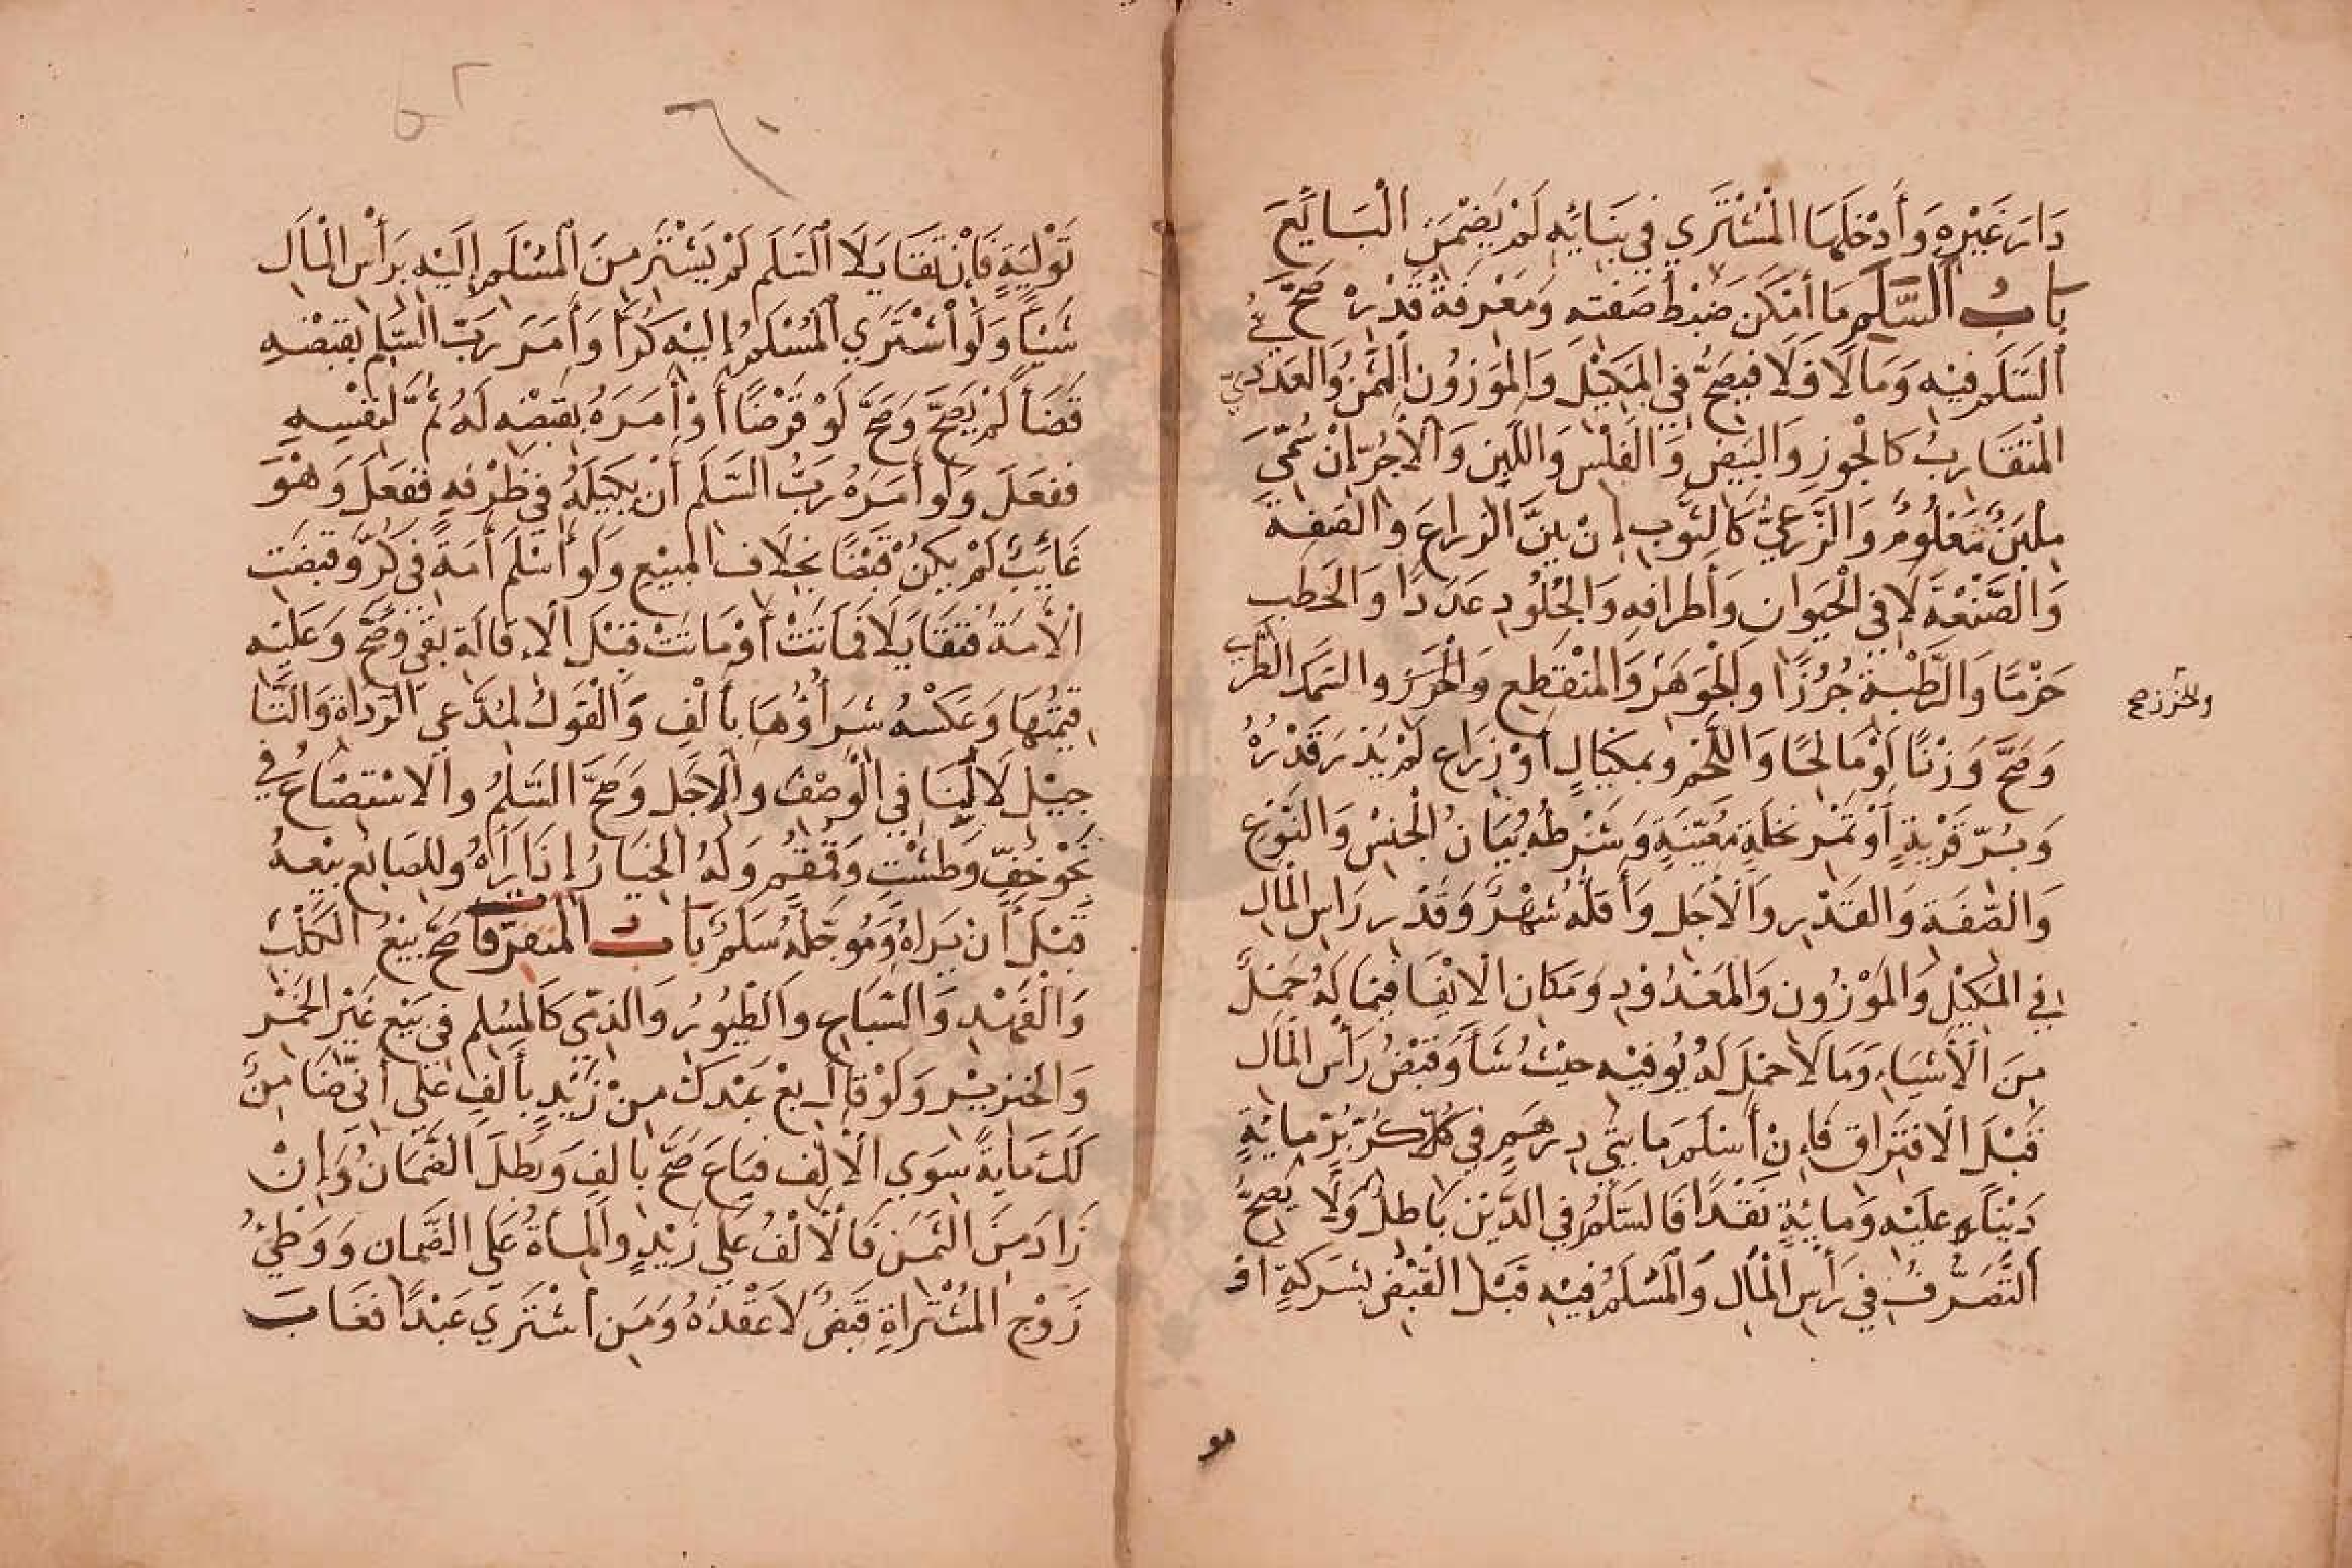 دَارَ غَيْرِهِ وَأَدْخَلَهَا الْمُشْتَرِي فِي بِنَائِهِ لَمْ يَضْمَنِ الْبَائِعَ
بَابُ السَّلَمِ مَا أَمْكَنَ ضَبْطُ صِفَتِه وَمَعْرِفَةُ قَدْرِهْ صَحَّ
اَلسَّلَمُ فِيْهِ وَمَا لَا فَلَا فَيَصِحُّ فِي الْمَكِيْلِ وَالْمَوْزُونِ الْمُثْمَنِ وَالْعَدَدِيِّ
الْمُتَقَارِبِ كَالْجَوزِ وَالْبَيْضِ وَالْفَلْسِ وَاللَّبِنِ وَالْآجُرِّ إِنْ سُمِّيَ
مِلْبَنٌ مَعْلُومٌ وَالذَّرْعِيُّ كَالثَّوْبِ إِنْ بَيَّنَ الذِّرَاعَ وَالصِّفَةَ
وَالصَّنْعَةَ لَا فِي الْحَيَوَانِ وَأَطْرَافِهِ وَالْجُلُودِ عَدَدًا وَالْحَطَبِ
حَزْمًا وَالرَّطْبَةِ جُرُزًا وَالْجَوْهَرِ وَالْمُنْقَطِعِ وَالْخَرَزِ وَالسَّمَكِ الطَّرِيِّ
وَالْخَرَز صح
وَصَحَّ وَزْنًا لَوْ مَالِحًا وَاللَّحْمِ وَبِمِكْيَالٍ أَوْ ذِرَاعٍ لَمْ يُدْرَ قَدْرُهُ
وَبُرِّ قَرْيَةٍ أَوْ تَمْرِ نَخْلَةٍ مُعَيَّنَةٍ وَشَرْطُهُ بَيَانُ الْجِنْسِ وَالنَّوْعِ
وَالصِّفَةِ وَالْقَدْرِ وَالْأَجَلِ وَأَقَلُّهُ شَهْرٌ وَقَدْرِ رَاسِ الْمَالِ
فِي الْمَكِيْلِ وَالْمَوْزُونِ وَالْمَعْدُوْدِ وَمَكَانِ الْإِيْفَا فِيْمَا لَهُ حَمْلٌ
مِنَ الْأَشْيَاءِ وَمَا لَا حَمْلَ لَهُ يُوفِيْهِ حَيْثُ شَأَ وَقَبْضُ رَأْسِ الْمَالِ
قَبْلَ الْاِفْتِرَاقِ فَإِنْ أَسْلَمَ مِايَتَي دِرْهَمٍ فِي كُرِّ بُرٍّ مِايَةً
دَيْنًا عَلَيْهِ وَمِايَةً نَقْدًا فَالسَّلَمُ فِي الدَّيْنِ بَاطِلٌ وَلَا يَصِحُّ
اَلتَّصَرُّفُ فِي رَأْسِ الْمَالِ وَالْمُسْلَمُ فِيْهِ قَبْلَ الْقَبْضِ بِشَرِكَةٍ اَوْ
تَوْلِيَةٍ فَإِنْ تَقَايَلَا السَّلَمَ لَمْ يَشْتَرِ مِنَ الْمُسْلَمِ إِلَيْهِ بِرَأْسِ الْمَالِ
شَيْأً وَلَوِ اشْتَرَي الْمُسْلَمُ إِلَيْهِ كُرًّا وَأَمَرَ رَبَّ السَّلَمِ بِقَبْضِهِ
قَضَاً لَمْ يَصِحَّ وَصَحَّ لَوْ قَرْضًا أَوْ أَمَرَهُ بِقَبْضِهِ لَهُ ثُمَّ لِنَفْسِهِ
فَفَعَلَ وَلَوْ أَمَرَهُ رَبُّ السَّلَمِ أَنْ يَكِيْلَهُ فِي ظَرْفِهِ فَفَعَلَ وَهْوَ
غَائِبٌ لَمْ يَكُنْ قَبْضًا بِخِلَافِ الْمَبِيْعِ وَلَوْ أَسْلَمَ أَمَةً فِي كُرٍّ وَقَبِضَتِ
الْأَمَةُ فَتَقَايَلَا فَمَاتَتْ أَوْ مَاتَتْ قَبْلَ الْإِقَالَةِ بَقِيَ وَصَحَّ وَعَلَيْهِ
قِيْمَتُهَا وَعَكْسُهُ شِرَأُؤُهَا بِأَلْفٍ وَالْقَولُ لِمُدَّعِي الرَّدَاةِ وَالتَّا
جِيْلِ لَا لِنَا فِي الْوَصْفِ وَالْأَجَلِ وَصَحَّ السَّلَمُ وَالْاِسْتِصْنَاعُ فِي
نَحْوِ خُفٍّ وَطَشْتٍ وَقُمْقُمٍ وَلَهُ الْخِيَارُ إِذَا رَأَهُ وَلِلصَّانِعِ بَيْعُهُ
قَبْلَ أَنْ يَرَاهُ وَمُوَجَّلُهُ سَلَمٌ بَابُ الْمُتَفَرِّقَاتِ صَحَّ بَيْعُ الْكَلْبِ
وَالْفَهْدِ وَالسِّبَاعِ وَالطُّيُورِ وَالذِّمِّي كَالْمُسْلِمِ فِي بَيْعِ غَيْرِ الْخَمْرِ
وَالْخِنْزِيْرِ وَلَوْ قَالَ بِعْ عَبْدَكَ مِنْ زَيْدٍ بِأَلْفٍ عَلَي أَنِّي ضَامِنٌ
لَكَ مِايَةً سِوَي الْأَلْفِ فَبَاعَ صَحَّ بِالْفٍ وَبَطَلَ الضَّمَانُ وَإِنْ
زَادَ مِنَ الثَّمَنِ فَالْأَلْفُ عَلَي زَيْدٍ وَالْمِأةُ عَلَي الضَّمَانِ وَوَطْيُ
زَوْجِ الْمُشْتَرَاةِ قَبْضٌ لَا عَقْدُهُ وَمَنِ اشْتَرَي عَبْدًا فَغَابَ